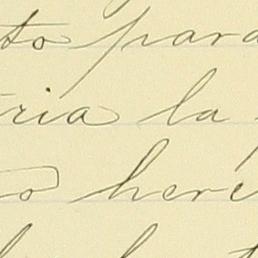 to para
ria la
o here